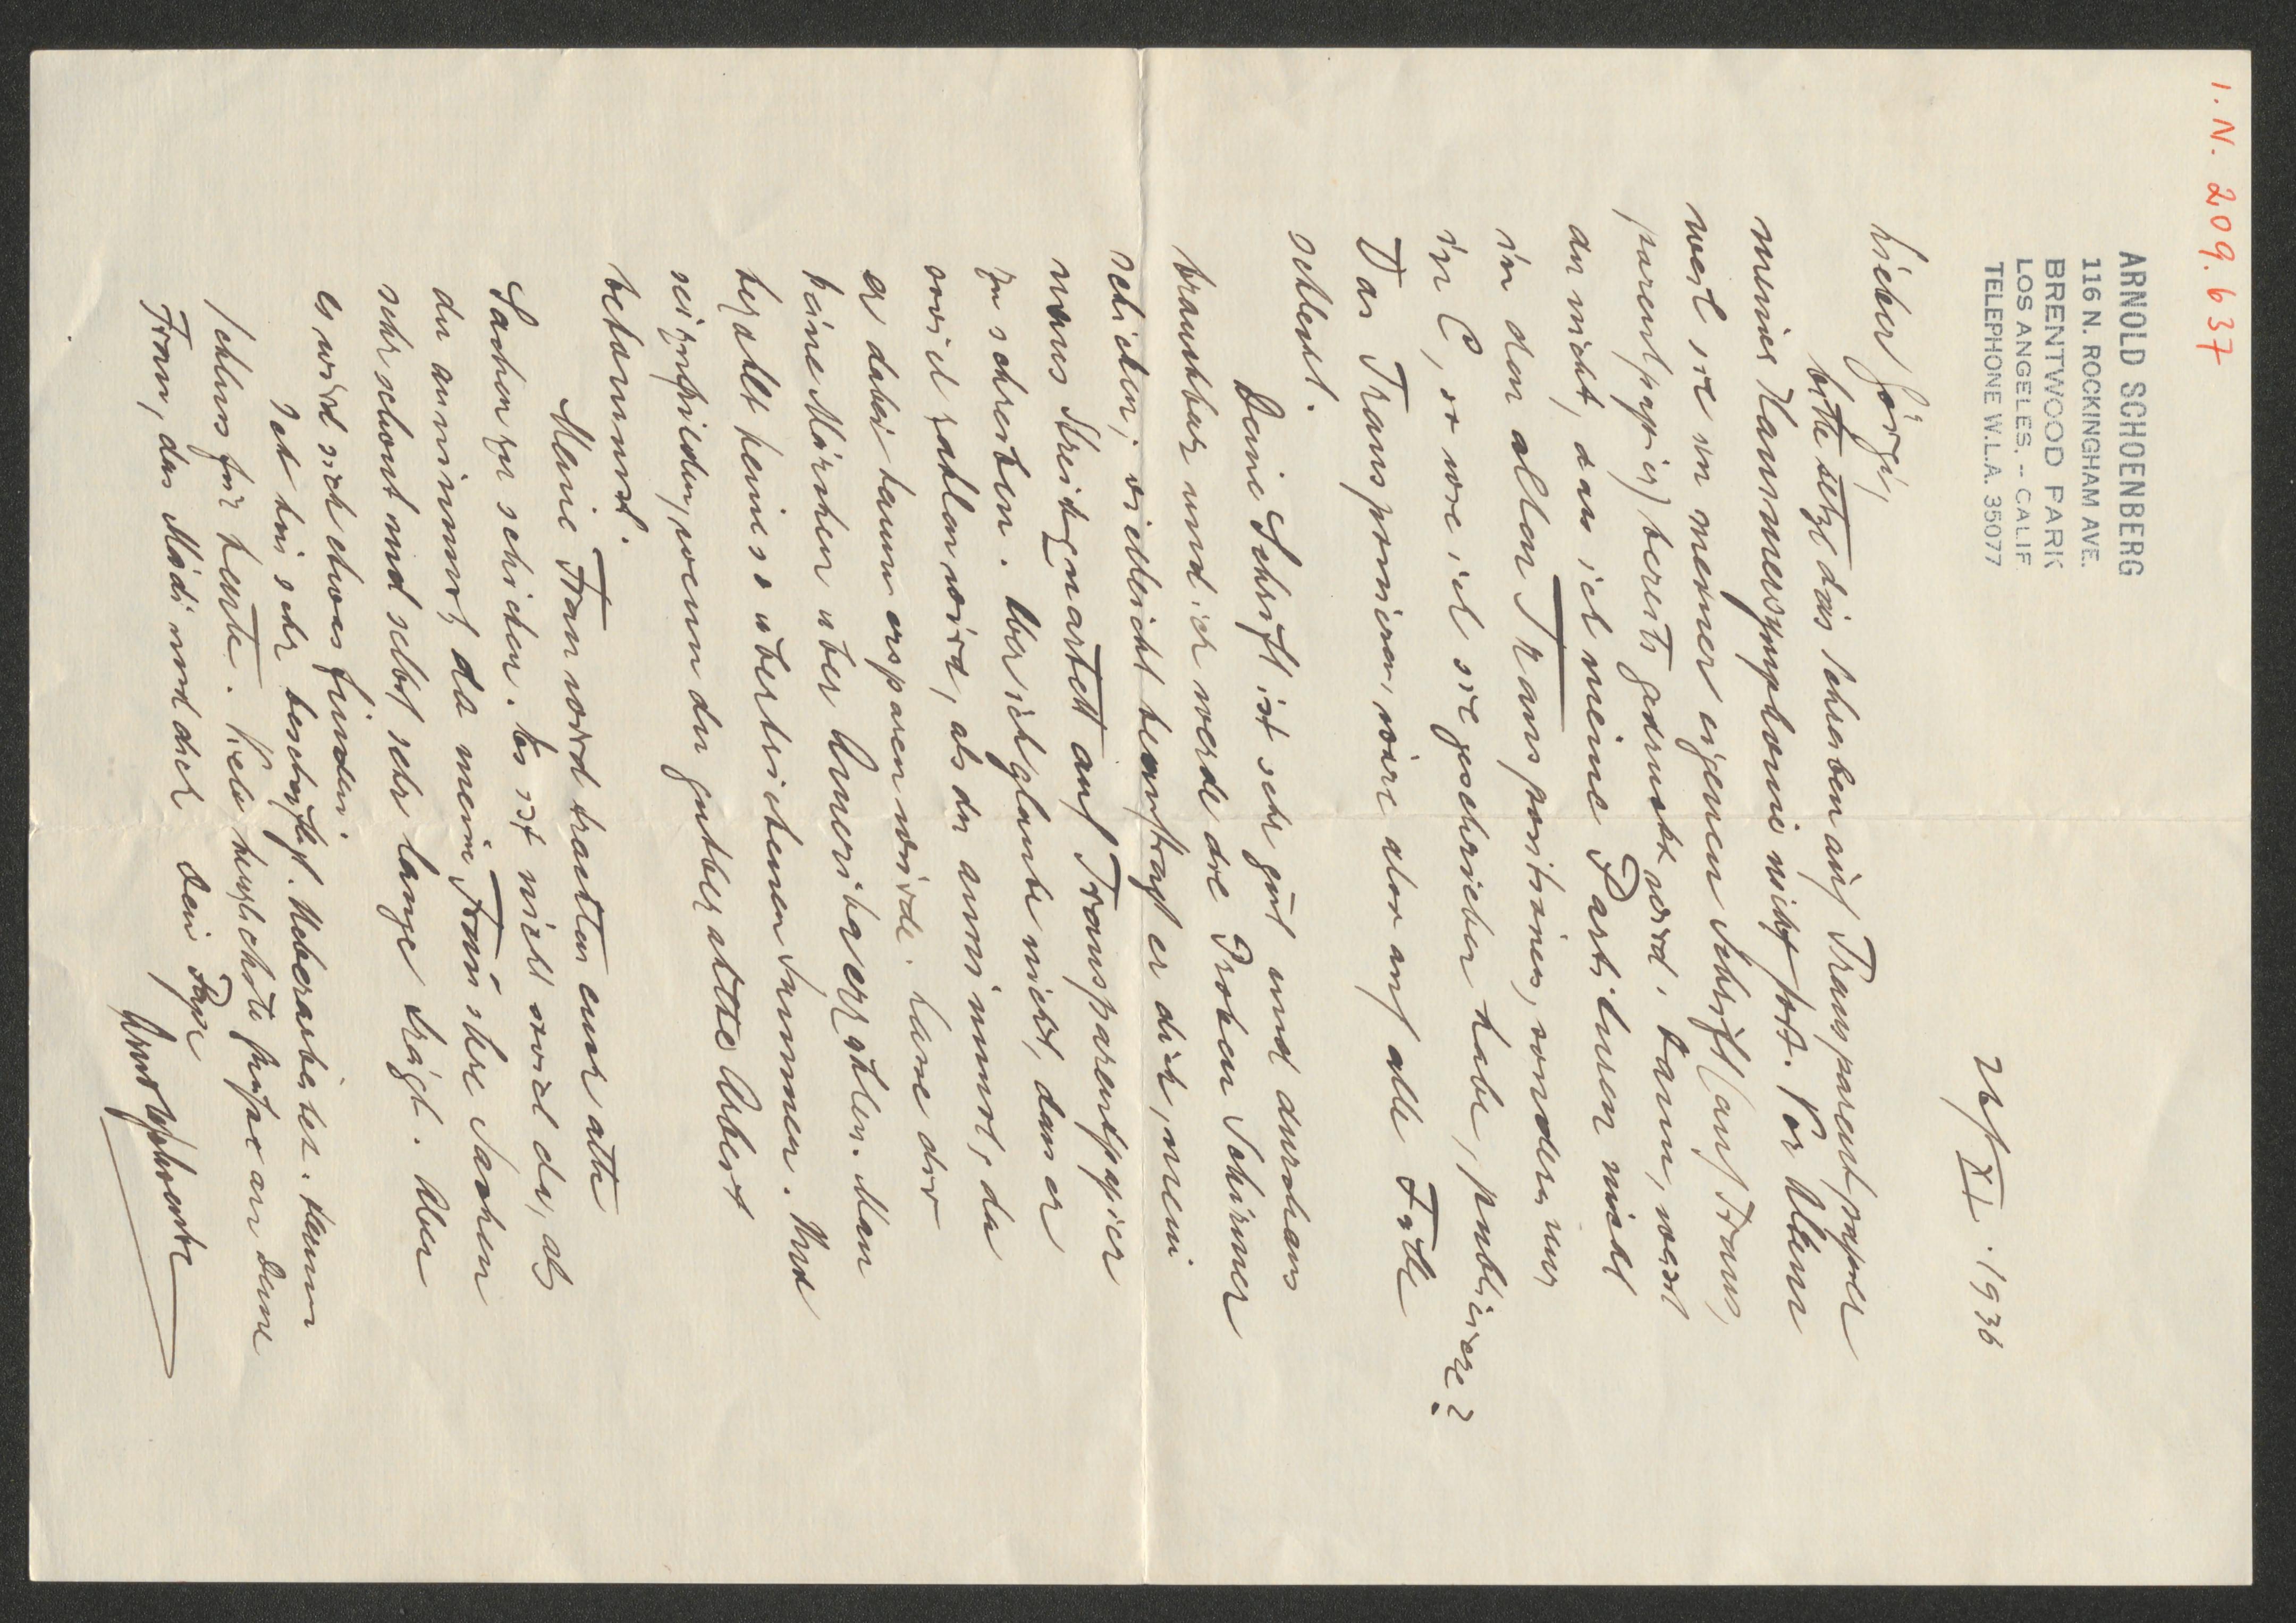 I. N. 209.637
ARNOLD SCHOENBERG
116 N. ROCKINGHAM AVE.
BRENTWOOD PARK
LOS ANGELES, -- CALIF
TELEPHONE W.L.A. 35077
XI. 1936
Lieber Görgi,
bitte setze das Schreiben auf Transparentpapier
meiner Kammersymphonie nicht fort. Vor Allem
weil sie in meiner eigenen Schrift (auf Trans-
parentpapier) bereits gedruckt wird. Dann, weil
du nicht, dass ich meine Partituren nicht
in den alten Transpositionen, sondern nur
in C, so wie ich sie geschrieben habe, publiziere?
Das Transponieren wäre also auf alle Fälle
schlecht.
Deine Schrift ist sehr gut und durchaus
brauchbar und ich werde die Proben Schirmer
schicken; vielleicht beauftragt er dich, mein
neues Streichquartett auf Transparentpapier
zu schreiben. Aber ich glaube nicht, dass er
soviel zahlen wird, als du annimmst, da
er dabei kaum ersparen würde. Lasse dir
keine Märchen über Amerika erzählen. Man
bezahlt keine so übertriebenen Summen. Und
sei zufrieden, wenn du gutbezahlte Arbeit
bekommst.
Meine Frau wird trachten euch alte
Sachen zu schicken. Es ist nicht soviel da, als
du annimmst, da meine Frau ihre Sachen
sehr schont und selbst sehr lange trägt. Aber
es wird sich etwas finden.
Ich bin sehr beschäftigt. Ueberarbeitet. Darum
Schluss für heute. Viele herzlichste Grüsse an Deine
Frau, das Mädi und dich Dein Papa
Arnold Schoenberg